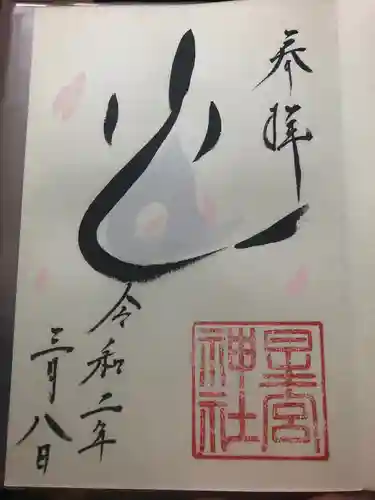 奉拝
令和二年
三月八日
星宮
神社